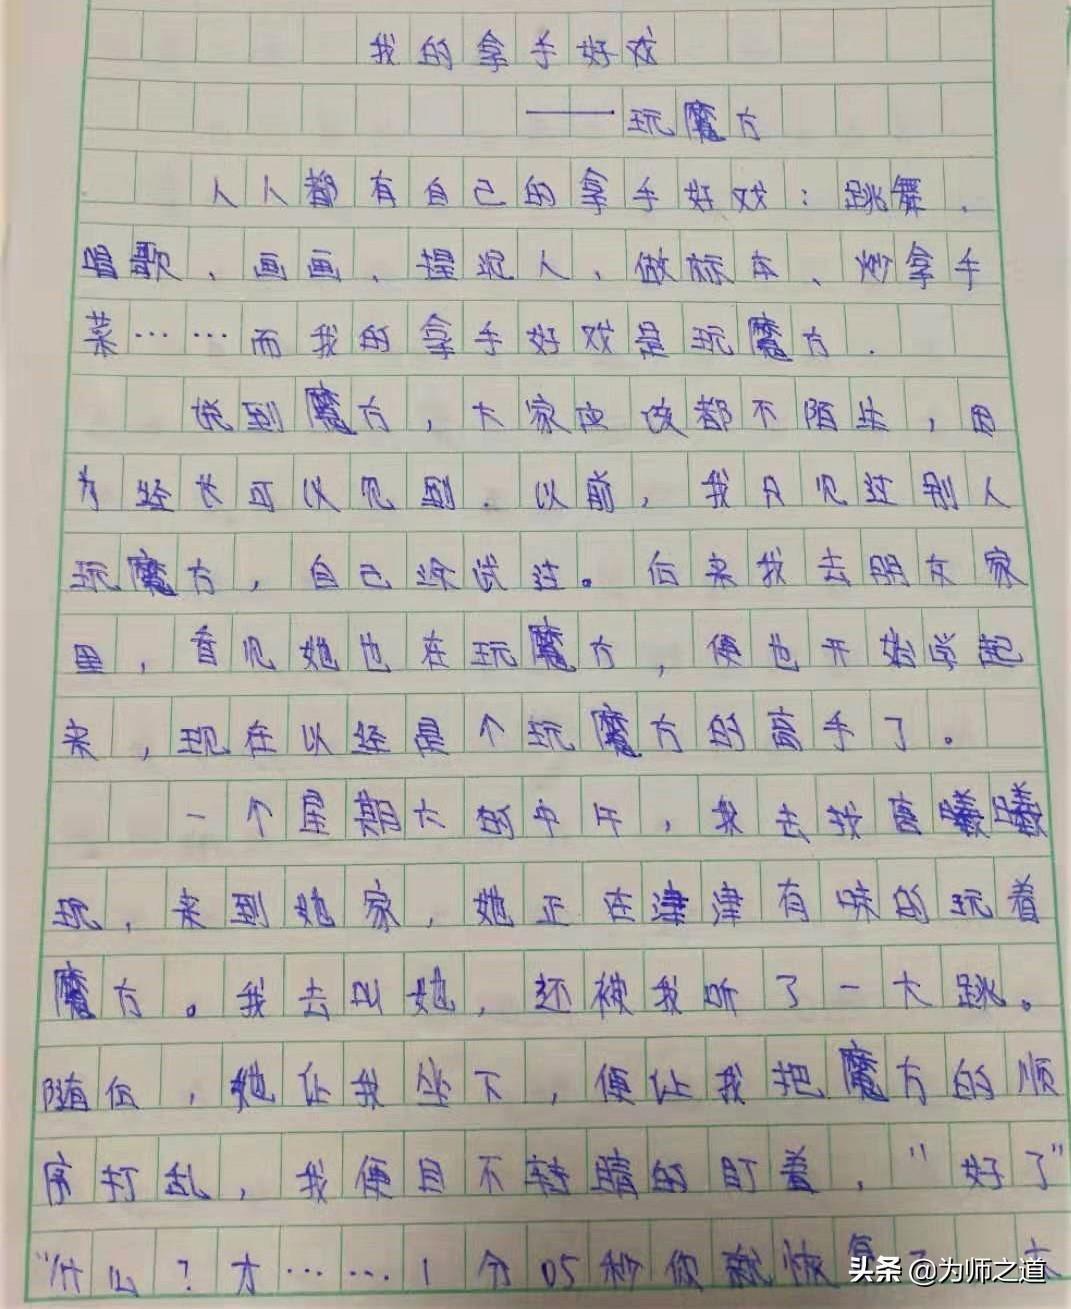 我的拿手好戏
——玩魔方
人人都有自己的拿手好戏：跳舞、
唱歌、画画、捏泥人、做标本、炒拿手
菜……而我的拿手好戏是玩魔方.
说到魔方，大家应该都不陌生，因
为经长可以见到.以前，我只见过别人
玩魔方，自己没试过。后来我去朋友家
里，看见她也在玩魔方，便也开始学起
来，现在以经是个玩魔方的高手了。
一个星期六的中午，我去找高曦曦
玩，来到她家，她正在津津有味的玩着
魔方。我去叫她，还被我吓了一大跳。
随后，她让我坐下，便让我把魔方的顺
序打乱，我便目不转睛的盯着，"好了"
"什么？才……1分05秒你就恢复了
头条 @为师之道